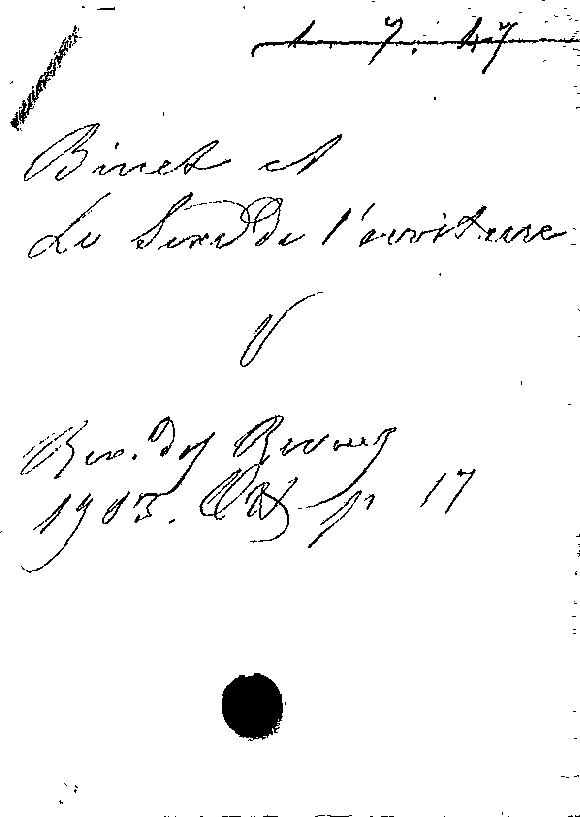 1. 7. 47
Binet A
Le Sexe de l'écriture
V
Rev. des Revues
1903. Oct p 17